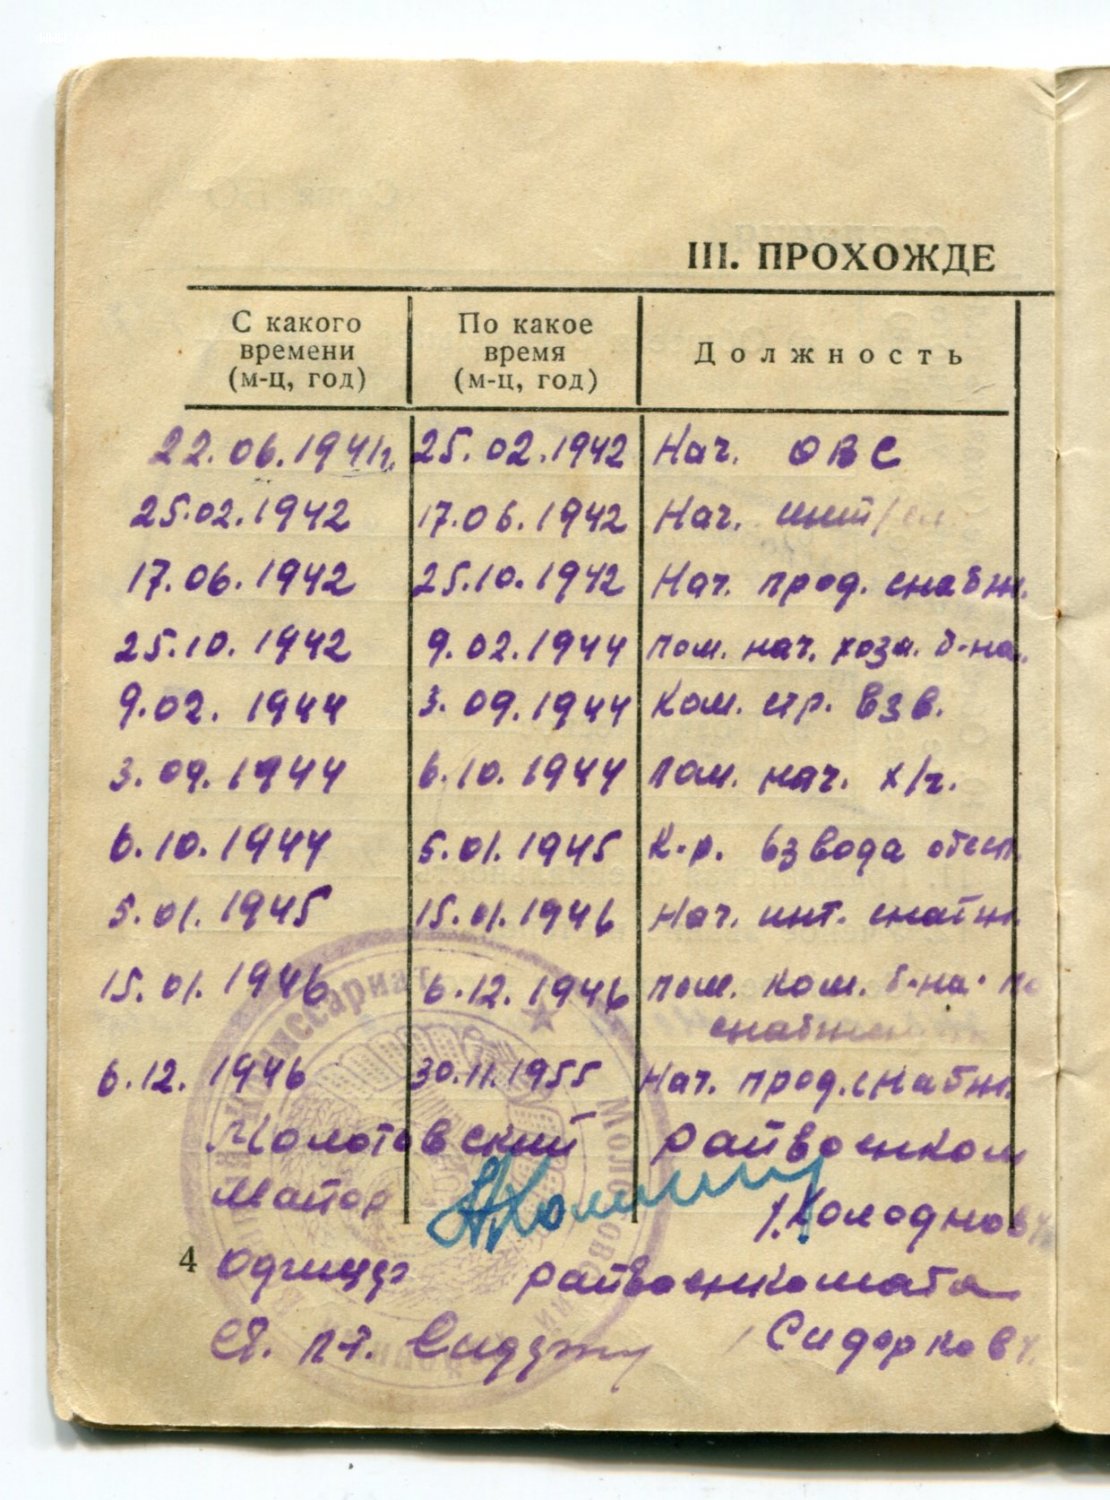 III. ПРОХОЖДЕ
С какого времени (м-ц, год) По какое время (м-ц, год) Должность
22.06.1941г. 25.02.1942 Нач. ОВС
25.02.1942 17.06.1942 Нач.
17.06.1942 25.10.1942 Нач. прод. снабж.
25.10.1942 9.02.1944 пом. нач. хозя. б-на.
9.02.1944 3.09.1944 Ком. стр. взв.
3.09.1944 6.10.1944 пом. нач. х/ч.
6.10.1944 5.01.1945 К-р. взвода обесп.
5.01.1945 15.01.1946 Нач. инт. снабж.
15.01.1946 6.12.1946 пом. ком. б-на. по
6.12.1946 30.11.1955 Нач. прод. снабж.
Молотовский райвоенком
Майор /Холоднов/
4 райвоенкомата
Ст. л-т. /Сидорков/